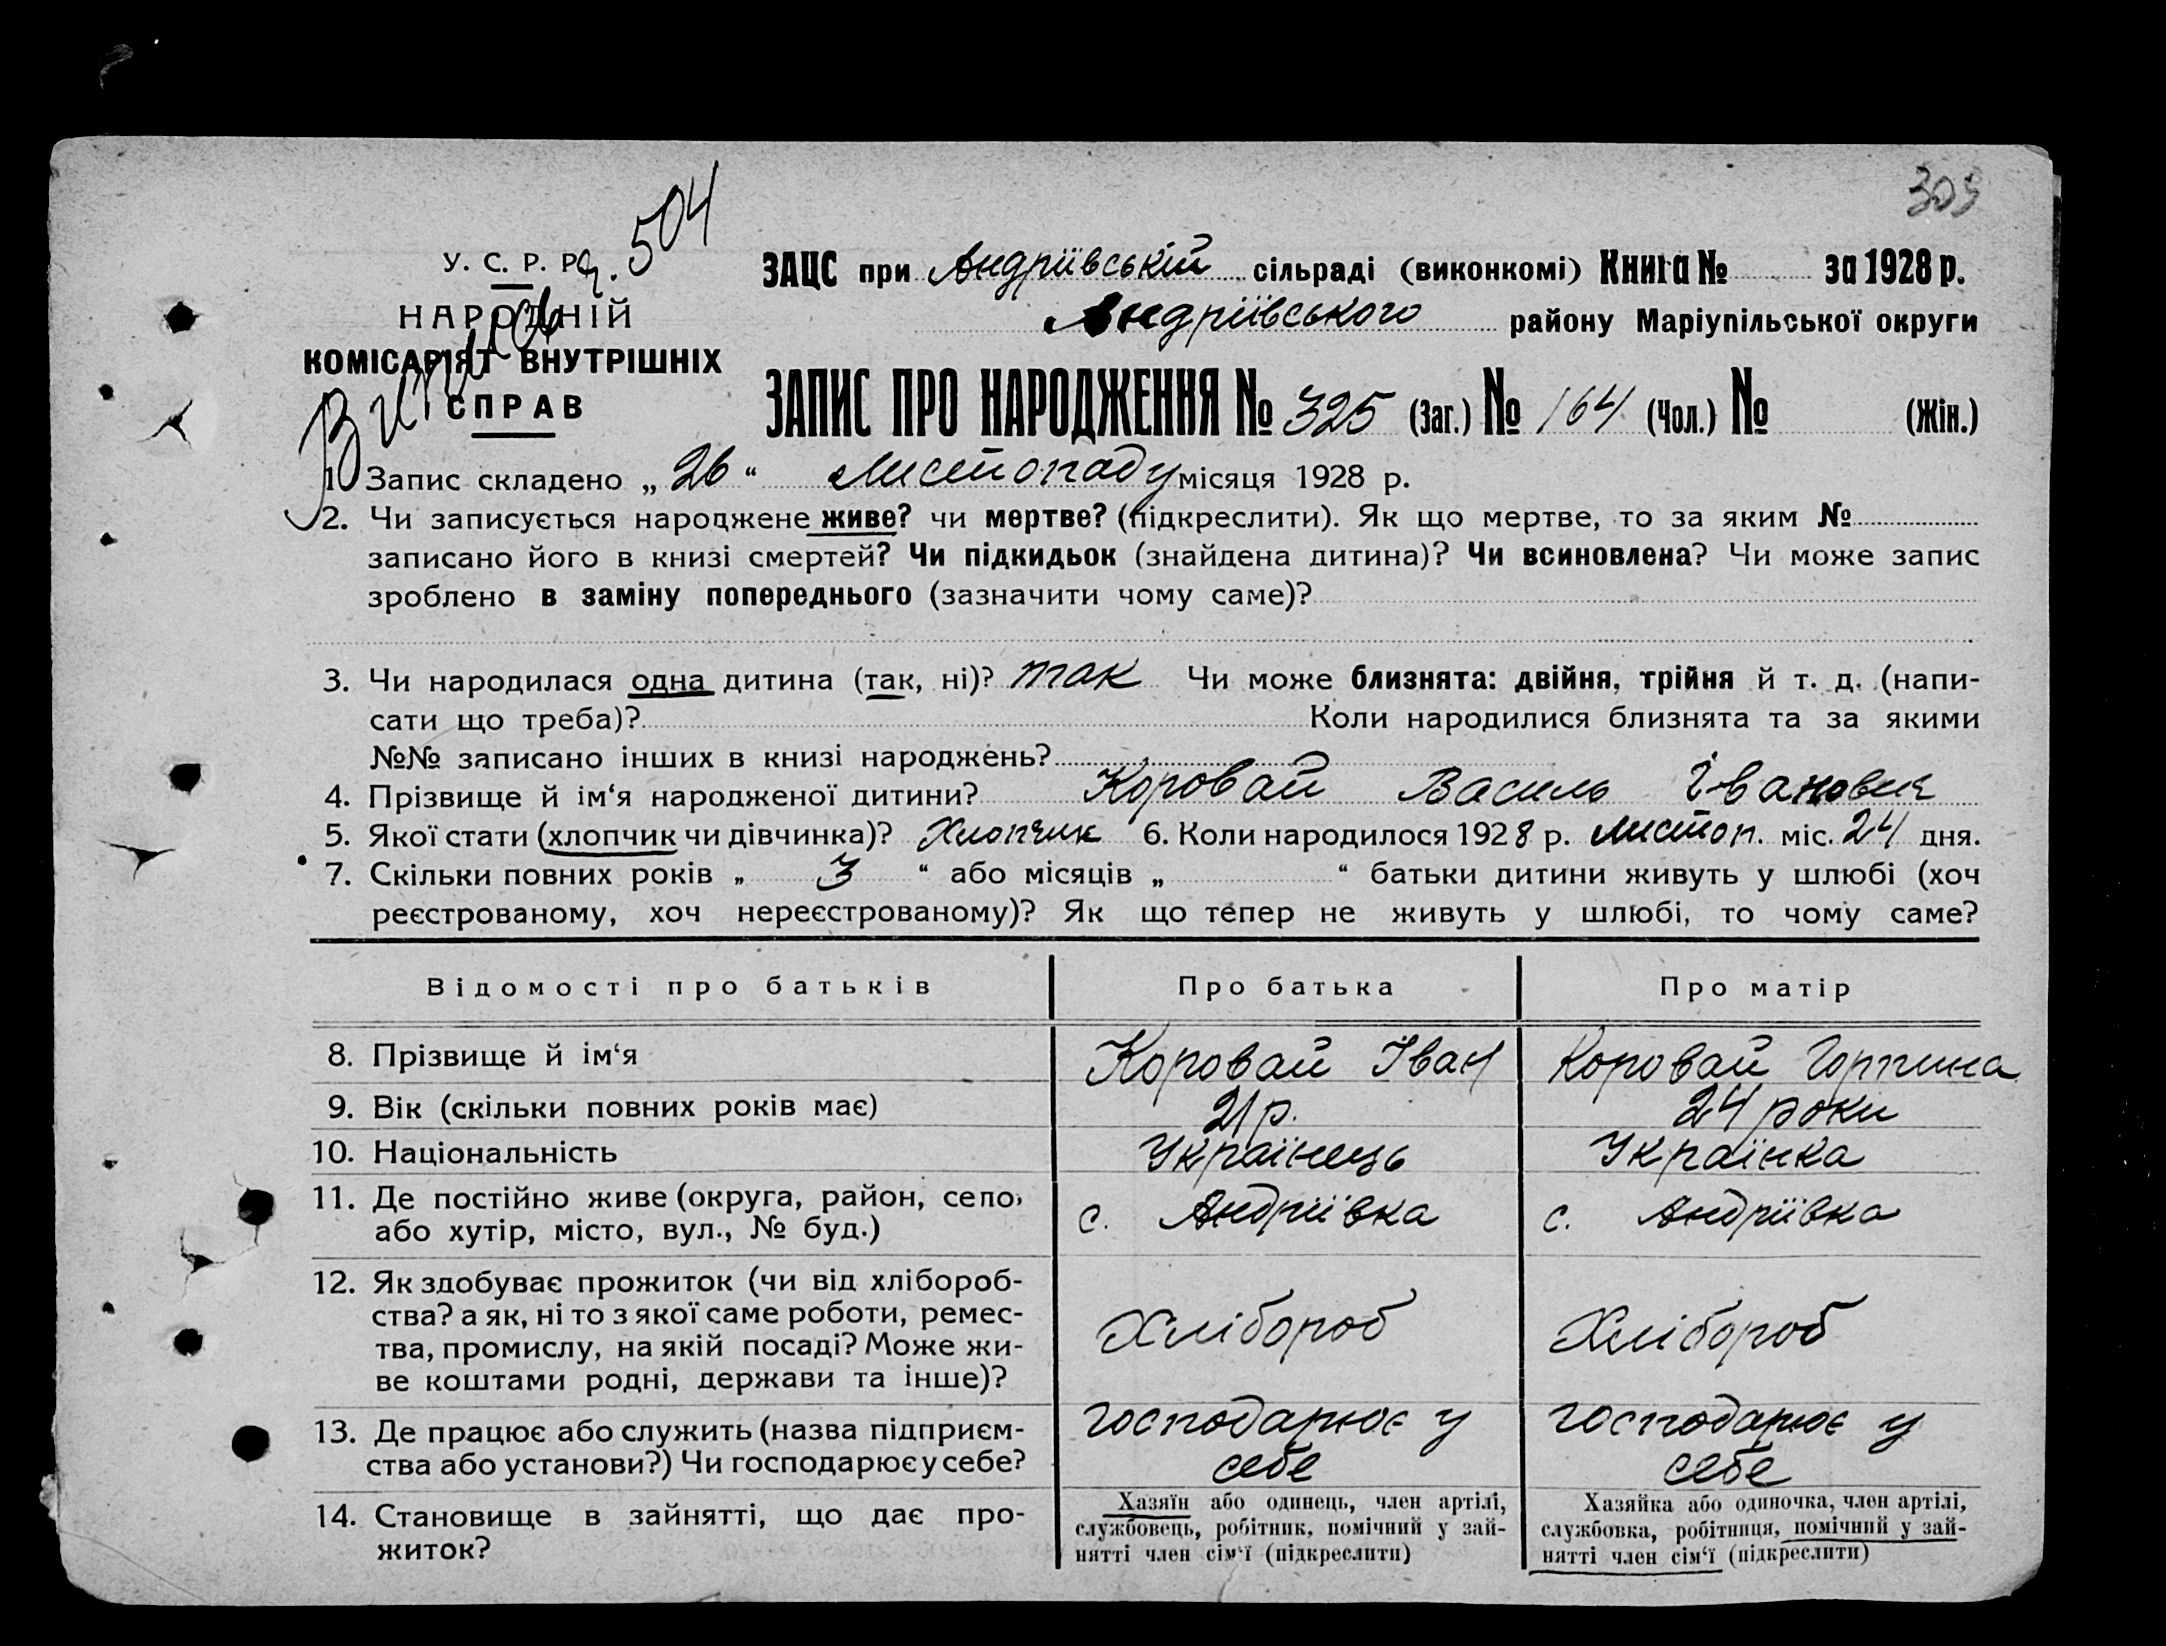 309
504
У. С. Р. Р.
НАРОДНІЙ
КОМІСАРІЯТ ВНУТРІШНІХ
СПРАВ
ЗАЦС при Андріївській сільраді (виконкомі) Книга № за 1928 р.
Андріївського району Маріупільської округи
ЗАПИС ПРО НАРОДЖЕННЯ № 325 (Заг.) № 164 (Чол.) № (Жін.)
1. Запис складено „ 26 “ Листопаду місяця 1928 р.
2. Чи записується народжене живе? чи мертве? (підкреслити). Як що мертве, то за яким №
записано його в книзі смертей? Чи підкидьок (знайдена дитина)? Чи всиновлена? Чи може запис
зроблено в заміну попереднього (зазначити чому саме)?
3. Чи народилася одна дитина (так, ні)? так Чи може близнята: двійня, трійня й т. д. (напи-
сати що треба)? Коли народилися близнята та за якими
№№ записано інших в книзі народжень?
4. Прізвище й ім‘я народженої дитини? Коровай Василь Іванович
5. Якої стати (хлопчик чи дівчинка)? Хлопчик 6. Коли народилося 1928 р. листоп. міс. 24 дня.
7. Скільки повних років „ 3 “ або місяців „ “ батьки дитини живуть у шлюбі (хоч
реєстрованому, хоч нереєстрованому)? Як що тепер не живуть у шлюбі, то чому саме?
Відомості про батьків Про батька Про матір
8. Прізвище й ім‘я Коровай Іван Коровай Горпина
9. Вік (скільки повних років має) 21 р. 24 роки
10. Національність Українець Українка
11. Де постійно живе (округа, район, село,
або хутір, місто, вул., № буд.) с. Андріївка с. Андріївка
12. Як здобуває прожиток (чи від хлібороб-
ства? а як, ні то з якої саме роботи, ремес-
тва, промислу, на якій посаді? Може жи-
ве коштами родні, держави та інше)?
Хлібороб Хлібороб
13. Де працює або служить (назва підприєм-
ства або установи?) Чи господарює у себе?
господарює у
себе
господарює у
себе
14. Становище в зайнятті, що дає про-
житок?
Хазяїн або одинець, член артілі,
службовець, робітник, помічний у зай-
нятті член сім‘ї (підкреслити)
Хазяйка або одиночка, член артілі,
службовка, робітниця, помічний у зай-
нятті член сім‘ї (підкреслити)